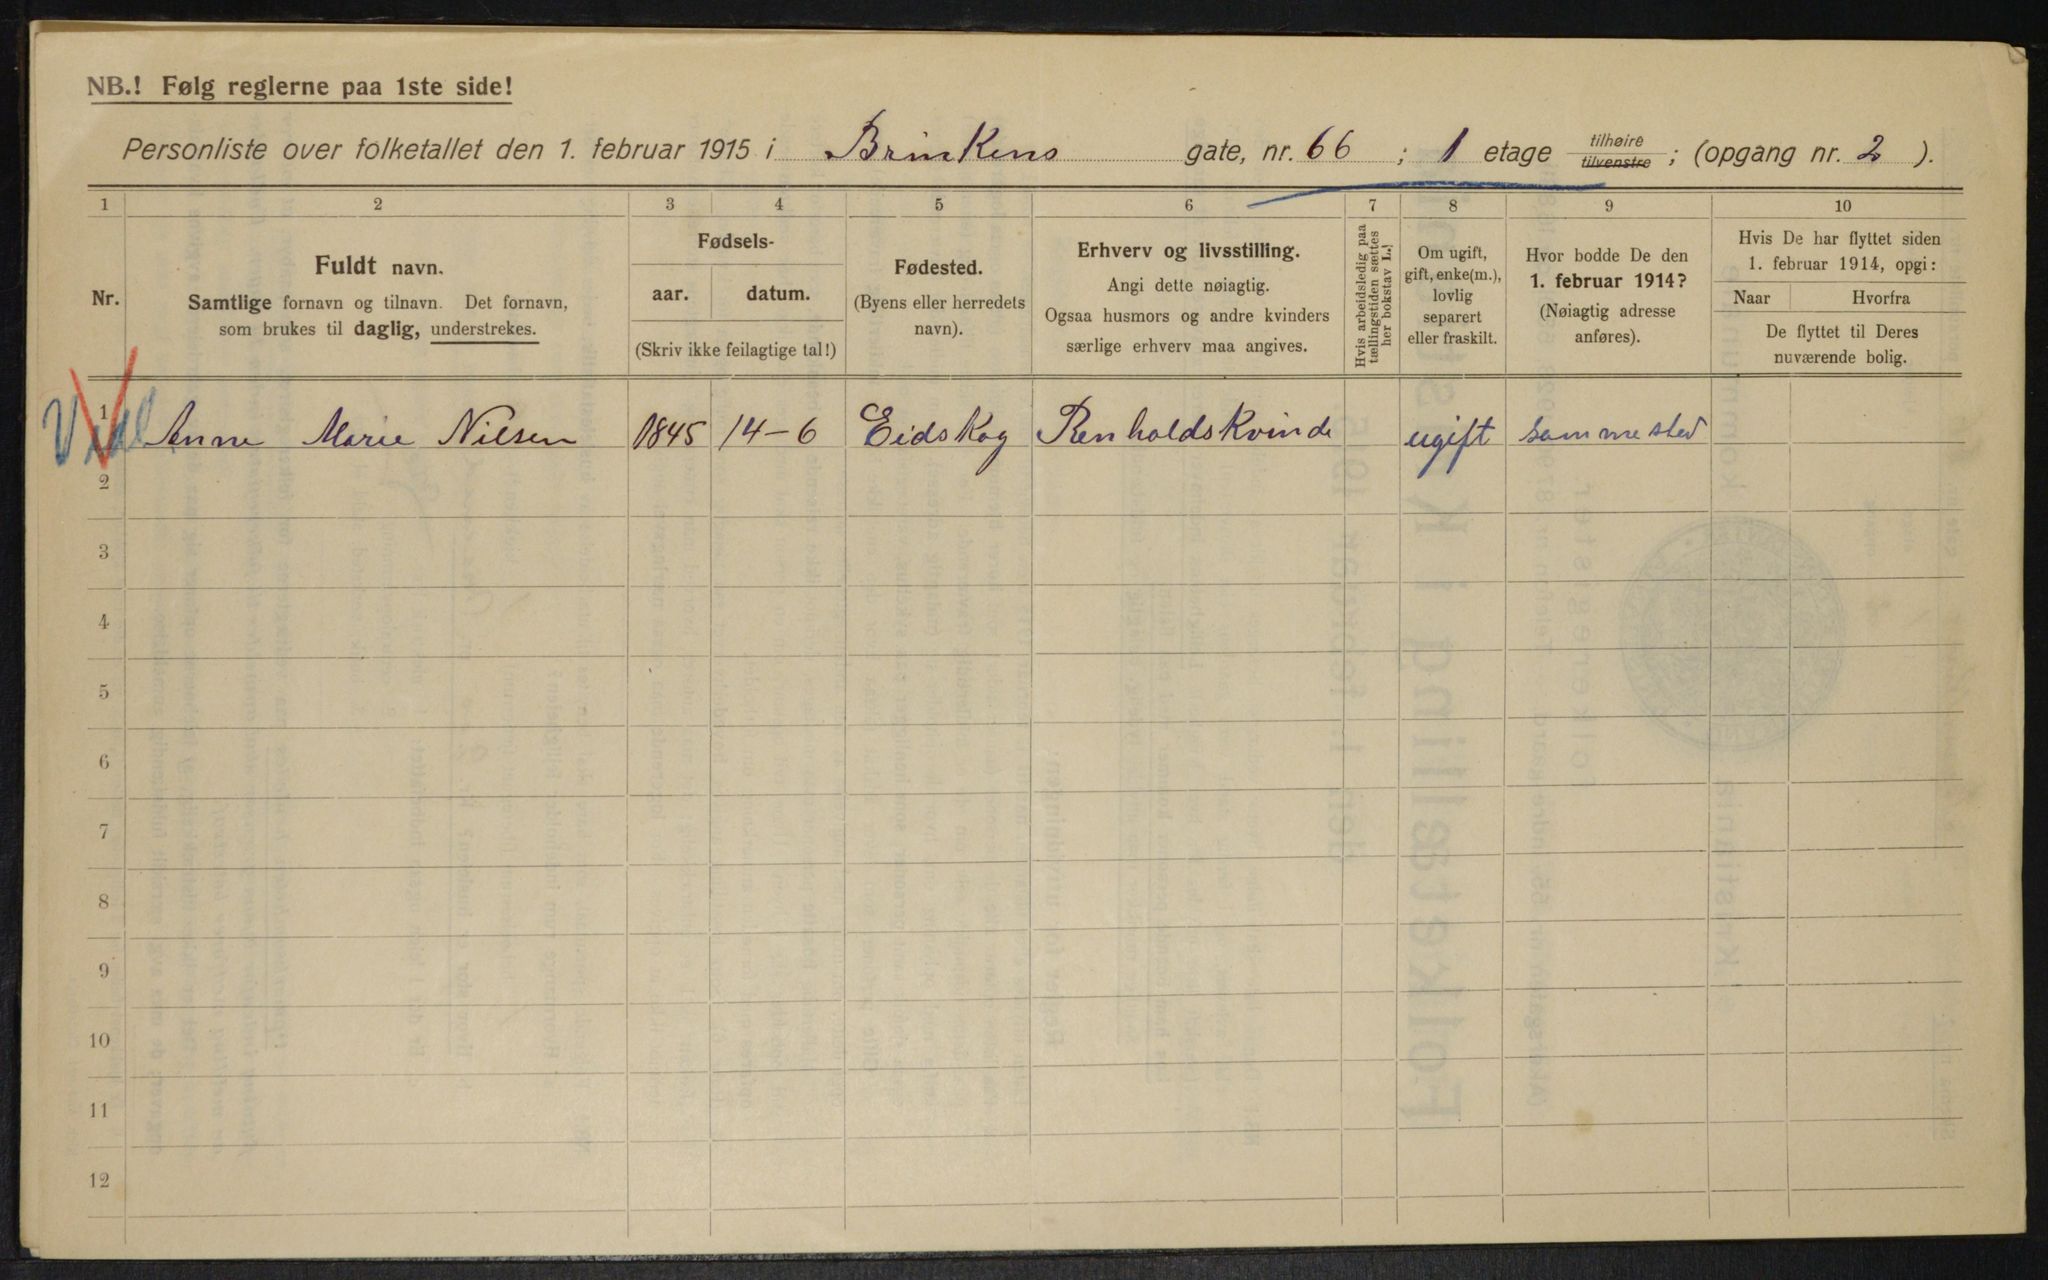 NB.! Følg reglerne paa 1ste side!
Personliste over folketallet den 1. februar 1915 i Brinkens gate, nr. 66 ; 1 etage tilhøire tilvenstre ; (opgang nr. 2 ).
1 2 3 4 5 6 7 8 9 10
Nr.
Fuldt navn.
Samtlige fornavn og tilnavn. Det fornavn,
som brukes til daglig, understrekes.
Fødsels-
aar. datum.
(Skriv ikke feilagtige tal!)
Fødested.
(Byens eller herredets
navn).
Erhverv og livsstilling.
Angi dette nøiagtig.
Ogsaa husmors og andre kvinders
særlige erhverv maa angives.
Hvis arbeidsledig paa
tællingstiden sættes
her bokstav L.!
Om ugift,
gift, enke(m.),
lovlig
separert
eller fraskilt.
Hvor bodde De den
1. februar 1914?
(Nøiagtig adresse
anføres).
Hvis De har flyttet siden
1. februar 1914, opgi:
Naar Hvorfra
De flyttet til Deres
nuværende bolig.
1 Anne Marie Nilsen 1845 14-6 Eidskog Renholdskvinde ugift sammested
2
3
4
5
6
7
8
9
10
11
12